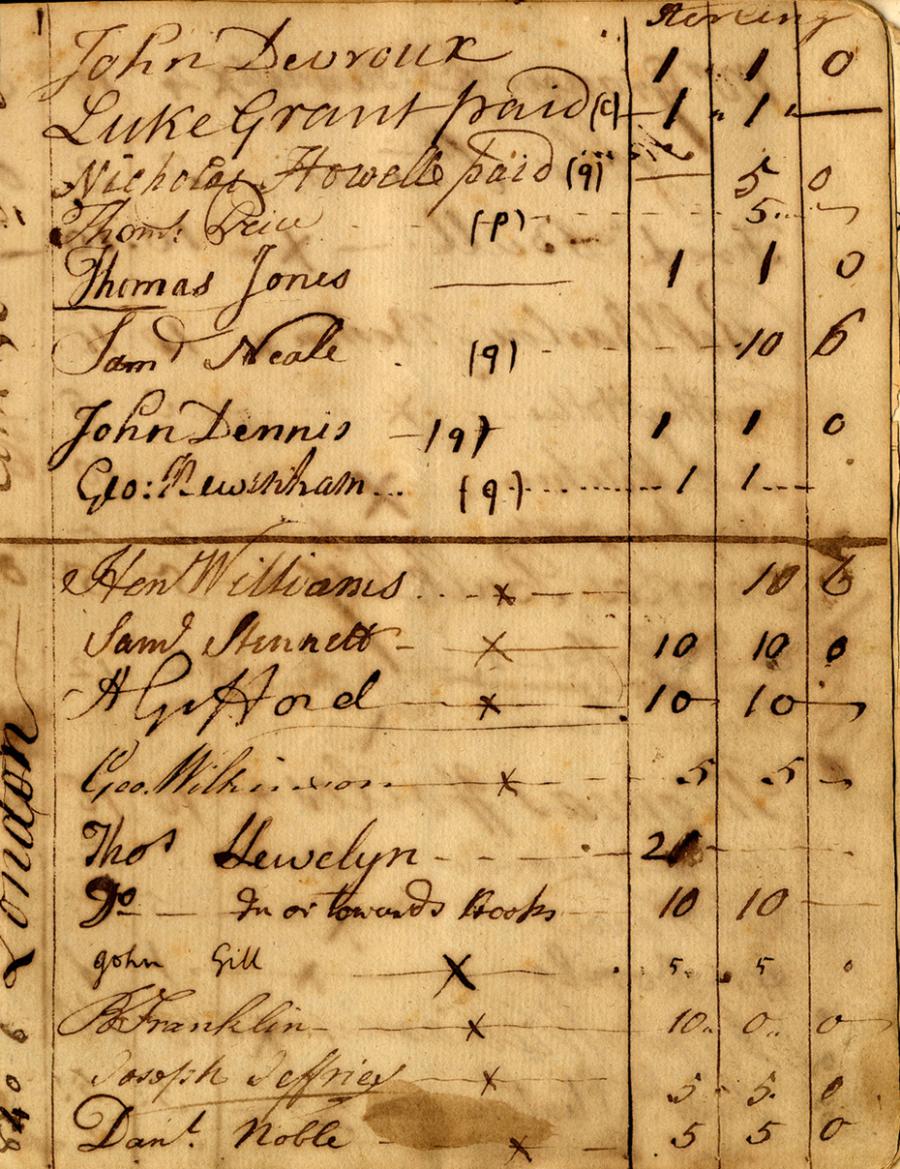 Sterling
John Devroux 1 1 0
Luke Grant paid (c) 1 1
Nicholas Howell paid (q) 5 0
Thoms. Price (p) 5
Thomas Jones 1 1 0
Samd Neale (q) 10 6
John Dennis (q) 1 1 0
Geo: (q) 1 1
Hen Williams x 10 6
Saml Stennett x 10 10 0
A Gifford x 10 10
Geo. Wilkinson x 5 5
Thos Llewelyn
Do In or towards Books 10 10
John Gill x 5 5 0
B Franklin x 10 0 0
Joseph Jeffries x 5 5 0
Danl. Noble x 5 5 0
London